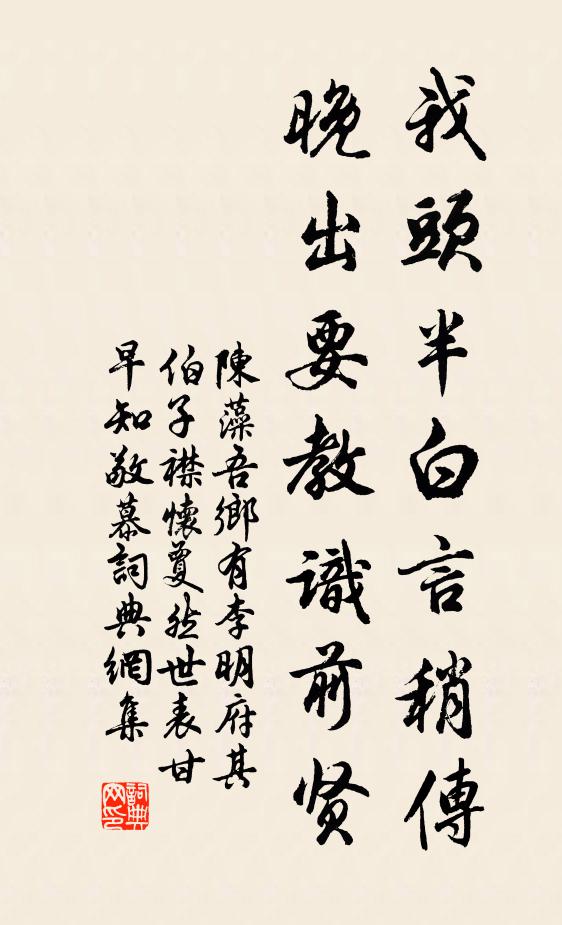 我頭半白言稍傳
晚出要教識前贤
陳藻吾鄉有李明府其
伯子襟懷夐然世表甘
早知敬慕詞典網集
詞典网印